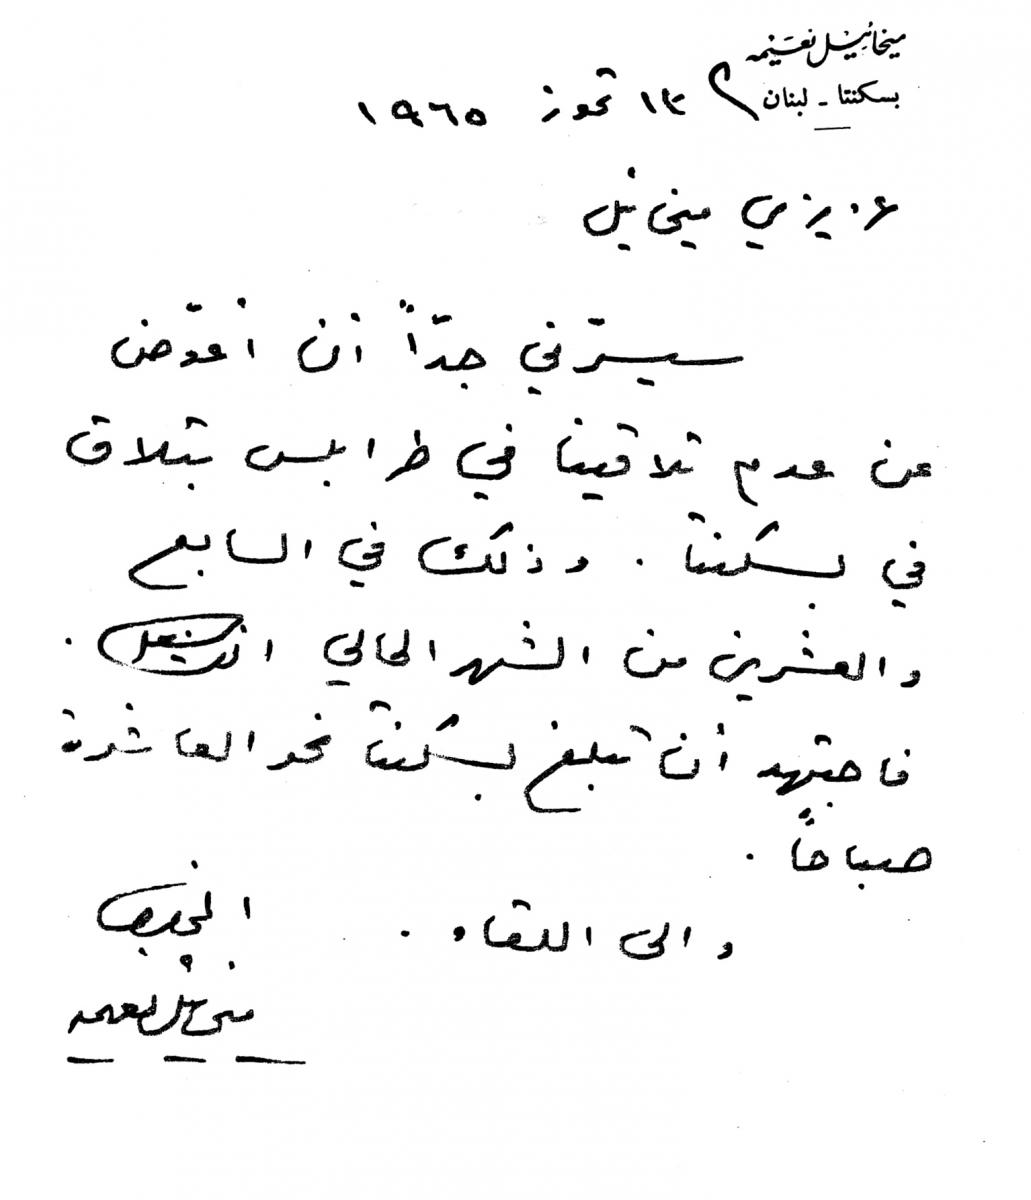 ميخائيل نعيمه
بسكنتا - لبنان
في ١٣ تموز ١٩٦٥
عزيزي ميخائيل
سيسرّني جدّاً أن أعوّض
عن عدم تلاقينا في طرابلس بتلاق
في بسكنتا . وذلك في السابع
والعشرين من الشهر الحالي .
فاجتهد أن تبلغ بسكنتا نحو العاشرة
صباحاً .
والى اللقاء .
المخلص
ميخائيل نعيمه